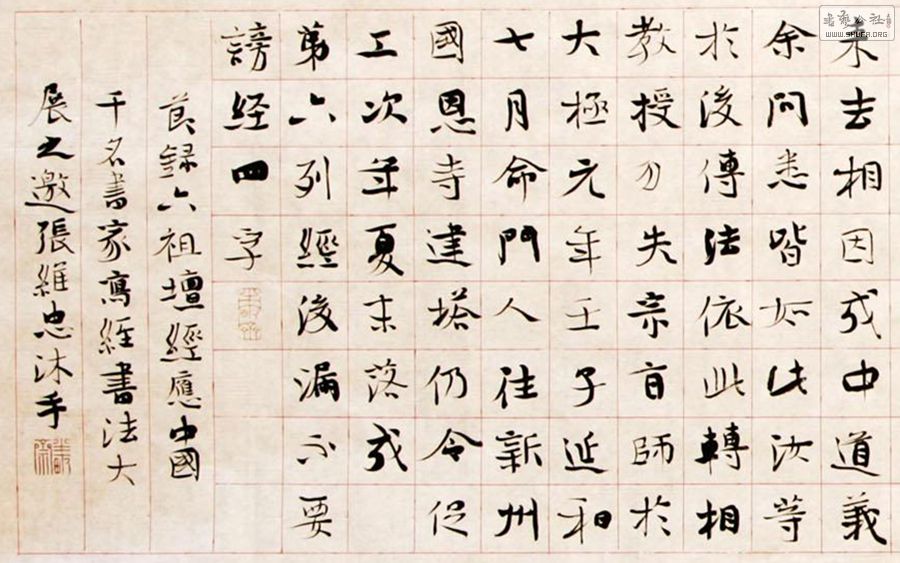 来去相因成中道義
余問悉皆如此汝等
於後傳法依此轉相
教授勿失宗旨師於
大極元年壬子延和
七月命門人往新州
國恩寺建塔仍令促
工次年夏末落成
第六列經後漏不要
謗经四字
節録六祖壇經應中國
千名書家寫經書法大
展之邀張維忠沐手
書藝公社
WWW.SHUFA.ORG